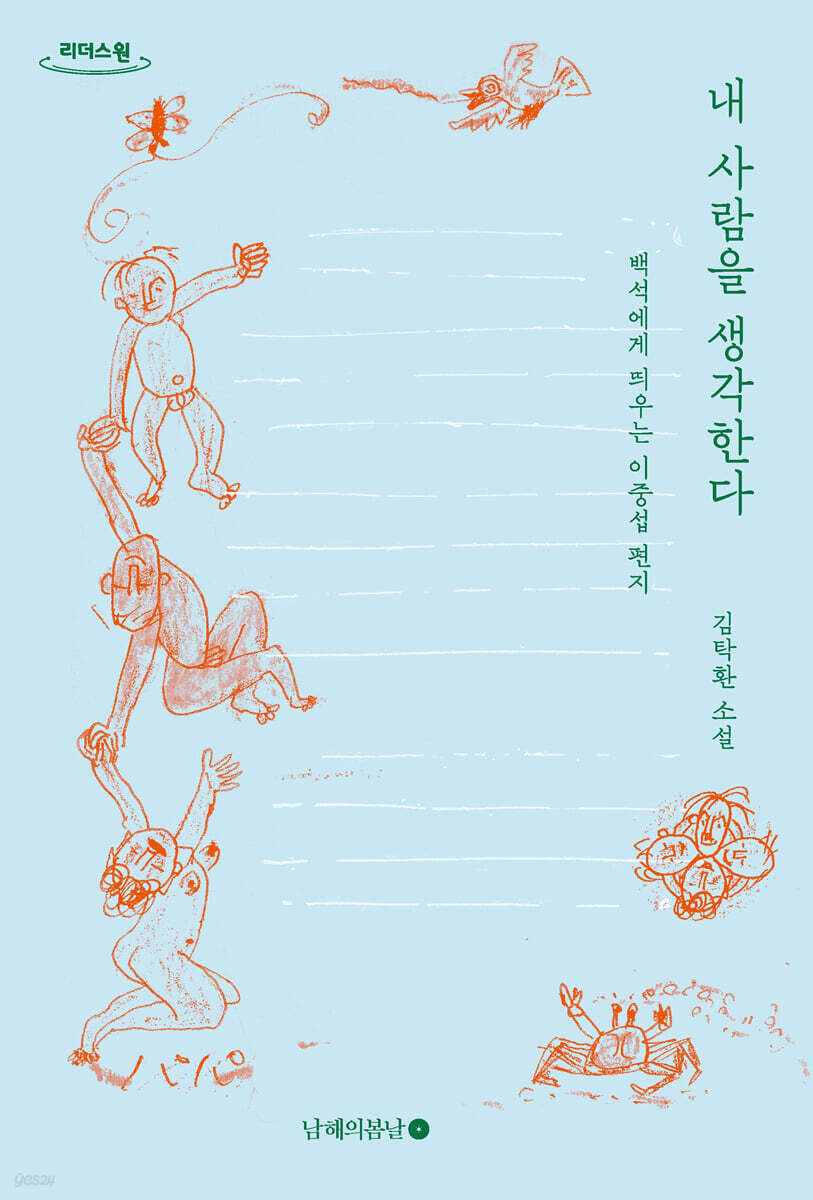 리더스원
내 사람을 생각한다
백석에게 띄우는 이중섭 편지
김탁환 소설
남해의봄날
yes24